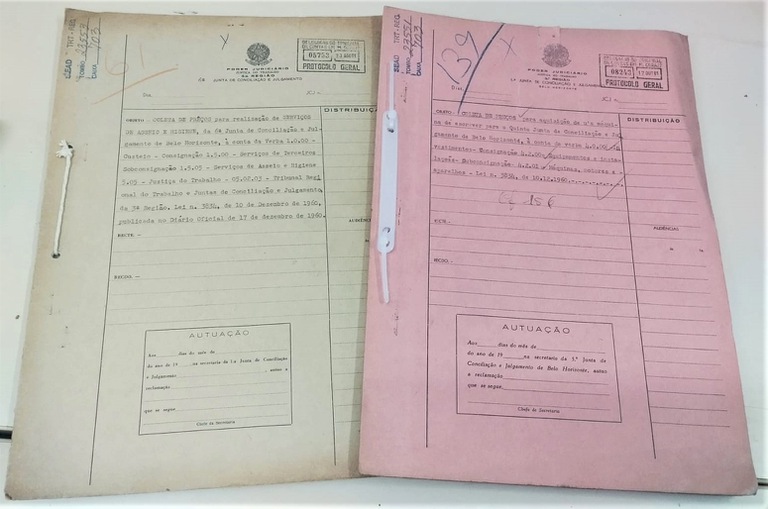 CEBAD TRT-REG.
TOMBO: 22553
CAIXA: 703
PROTOCOLO GERAL
PODER JUDICIÁRIO
JUSTIÇA DO TRABALHO
3a REGIÃO
JUNTA DE CONCILIAÇÃO E JULGAMENTO
DISTRIBUIÇÃO
OBJETO - COLETA DE PREÇOS para realização de SERVIÇOS
DE ASSEIO E HIGIENE, da 6a Junta de Conciliação e Jul-
gamento de Belo Horizonte, à conta da Verba 1.0.00 -
Custeio - Consignação 1.5.00 - Serviços de Terceiros
Subconsignação 1.5.05 - Serviços de Asseio e Higiene
5.05 - Justiça do Trabalho - 05.02.03 - Tribunal Regi
onal do Trabalho e Juntas de Conciliação e Julgamento
da 3a Região. Lei n. 3834, de 10 de Dezembro de 1960,
publicada no Diário Oficial de 17 de dezembro de 1960.
AUDIÊNCIAS
RECTE. —
RECDO. —
AUTUAÇÃO
Aos dias do mês de
do ano de 19 na secretaria da Junta de Conciliação
e Julgamento , autuo a
reclamação
que se segue
Chefe da Secretaria
CEBAD TRT-REG.
TOMBO: 22551
CAIXA: 703
139
PROTOCOLO GERAL
PODER JUDICIÁRIO
JUSTIÇA DO TRABALHO
3a REGIÃO
JUNTA DE CONCILIAÇÃO E JULGAMENTO
BELO HORIZONTE
DISTRIBUIÇÃO
OBJETO - COLETA DE PREÇOS para aquisição de u'a máqui
na de escrever para a Quinta Junta de Conciliação e Jul
gamento de Belo Horizonte, à conta da verba 4.0.00 - In
vestimentos- Consignação 4.2.00- Equipamentos e Insta-
lações- Subconsignação- 4.2.01 - Máquinas, motores e -
Aparelhos - Lei n. 3834, de 10.12.1960.
AUDIÊNCIAS
RECTE. -
RECDO. -
AUTUAÇÃO
Aos dias do mês de
do ano de 19 na secretaria da 5.a Junta de
Conciliação e Julgamento de Belo Horizonte, autuo
a reclamação
que se segue.
Chefe da Secretaria